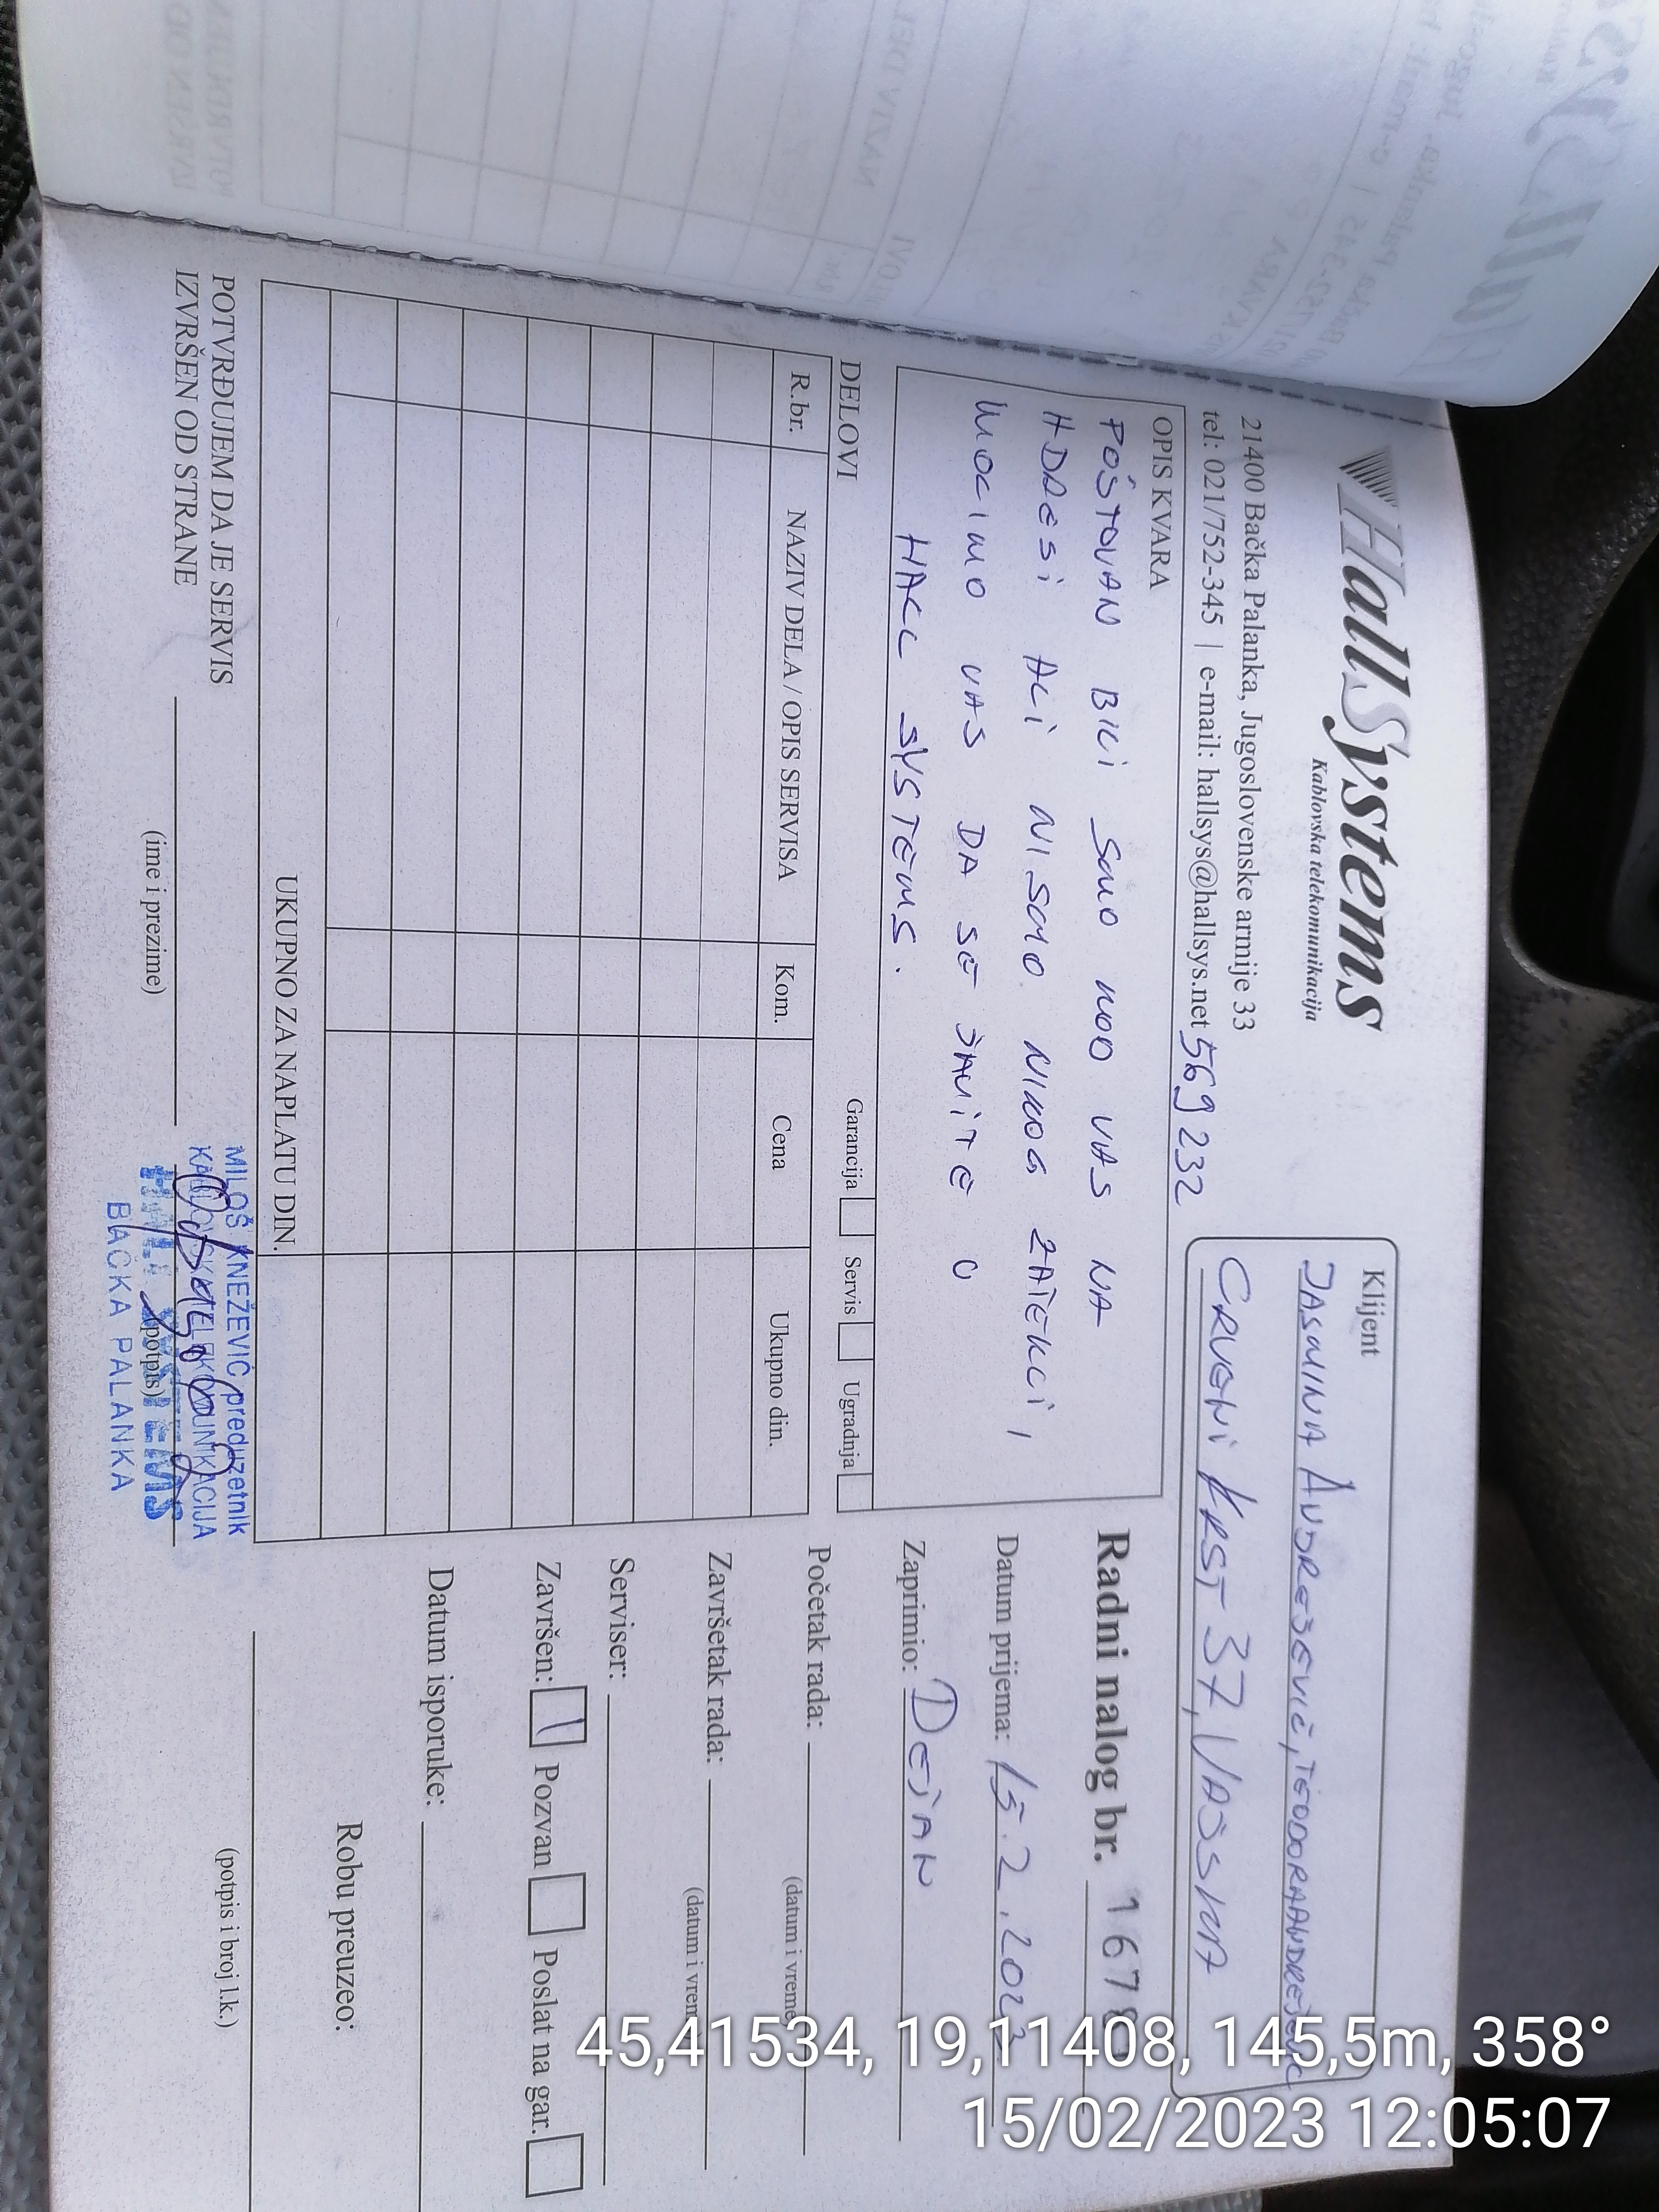 HallSystems
Kablovska telekomunikacija
21400 Bačka Palanka, Jugoslovenske armije 33
tel: 021/752-345 | e-mail: hallsys@hallsys.net 569 232
Klijent
JASMINA ANDREJEVIĆ, TEODORA
CRVENI KRST 37, VAJSKA
OPIS KVARA
POŠTOVAN BILI SMO KOD VAS NA
ADRESI ALI NISMO NIKOG ZATEKLI,
MOLIMO VAS DA SE JAVITE U
HALL SYSTEMS.
Radni nalog br. 1678
Datum prijema: 15.2.2023
Zaprimio: DEJAN
Početak rada:
(datum i vreme)
Završetak rada:
(datum i vreme)
Serviser:
Završen: Pozvan Poslat na gar.
Datum isporuke:
Robu preuzeo:
(potpis i broj l.k.)
DELOVI
Garancija Servis Ugradnja
R.br. NAZIV DELA / OPIS SERVISA Kom. Cena Ukupno din.
UKUPNO ZA NAPLATU DIN.
POTVRĐUJEM DA JE SERVIS
IZVRŠEN OD STRANE
(ime i prezime)
(potpis)
MILOŠ KNEŽEVIĆ preduzetnik
KABLOVSKA TELEKOMUNIKACIJA
HALL SYSTEMS
BAČKA PALANKA
45,41534, 19,11408, 145,5m, 358°
15/02/2023 12:05:07